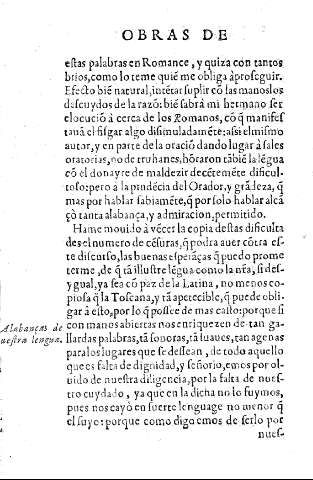 OBRAS DE
estas palabras en Romance, y quiza con tantos
brios, como lo teme quiē me obliga à proseguir.
Efecto biē natural, intētar suplir cō las manos los
descuydos de la razō: biē sabrà mi hermano ser
elocuciō à cerca de los Romanos, cō q̄ manifes
tauā el fisgar algo disimuladamēte: assi el mismo
autor, y en parte de la oraciō dando lugar à sales
oratorias, no de truhanes, hōraron tābiē la lēgua
cō el donayre de maldezir decētemēte dificul-
toso: pero a la prudēcia del Orador, y grādeza, q̄
mas por hablar sabiamēte, q̄ por solo hablar alcā
çò tanta alabança, y admiracion, permitido.
Hame mouido à vēcer la copia destas dificulta
des el numero de cēsuras, q̄ podra auer cōtra es-
te discurso, las buenas esperāças q̄ puedo prome
terme, de q̄ tā illustre lēgua como la nr̄a, si des-
ygual, ya sea cō paz de la Latina, no menos co-
piosa q̄ la Toscana, y tā apetecible, q̄ puede obli-
gar à esto, por lo q̄ possee de mas casto: porque si
con manos abiertas nos enriquezen de tan ga-
llardas palabras, tā sonoras, tā suaues, tan agenas
para los lugares que se dessean, de todo aquello
que es falta de dignidad, y señorio, emos por ol-
uido de nuestra diligencia, por la falta de nues-
tro cuydado, ya que en la dicha no lo fuymos,
pues nos cayò en suerte lenguage no menor q̄
el suyo: porque como digo emos de serlo por
nues-
Alabanças de
nuestra lengua.